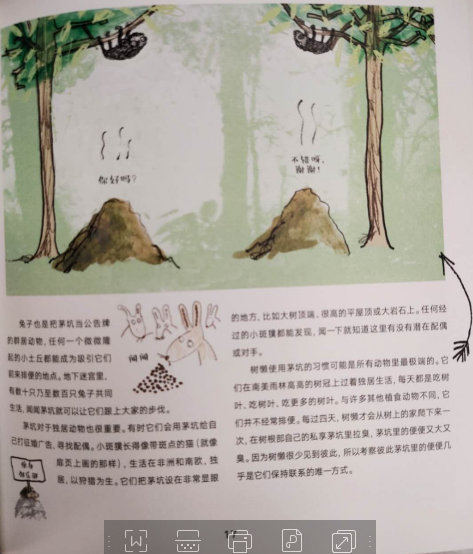 你好吗？
不错呀，
谢谢！
兔子也是把茅坑当公告牌
的群居动物，任何一个微微隆
起的小土丘都能成为吸引它们
前来排便的地点。地下迷宫里，
有数十只乃至数百只兔子共同
生活，闻闻茅坑就可以让它们跟上大家的步伐。
茅坑对于独居动物也很重要。有时它们会用茅坑给自
己打征婚广告，寻找配偶。小斑獛长得像带斑点的猫（就像
扉页上画的那样），生活在非洲和南欧，独
居，以狩猎为生。它们把茅坑设在非常显眼
闻闻
的地方，比如大树顶端、很高的平屋顶或大岩石上。任何经
过的小斑獛都能发现，闻一下就知道这里有没有潜在配偶
或对手。
树懒使用茅坑的习惯可能是所有动物里最极端的。它
们在南美雨林高高的树冠上过着独居生活，每天都是吃树
叶、吃树叶、吃更多的树叶。与许多其他植食动物不同，它
们并不经常排便。每过四天，树懒才会从树上的家爬下来一
次，在树根部自己的私享茅坑里拉臭，茅坑里的便便又大又
臭。因为树懒很少见到彼此，所以考察彼此茅坑里的便便几
乎是它们保持联系的唯一方式。